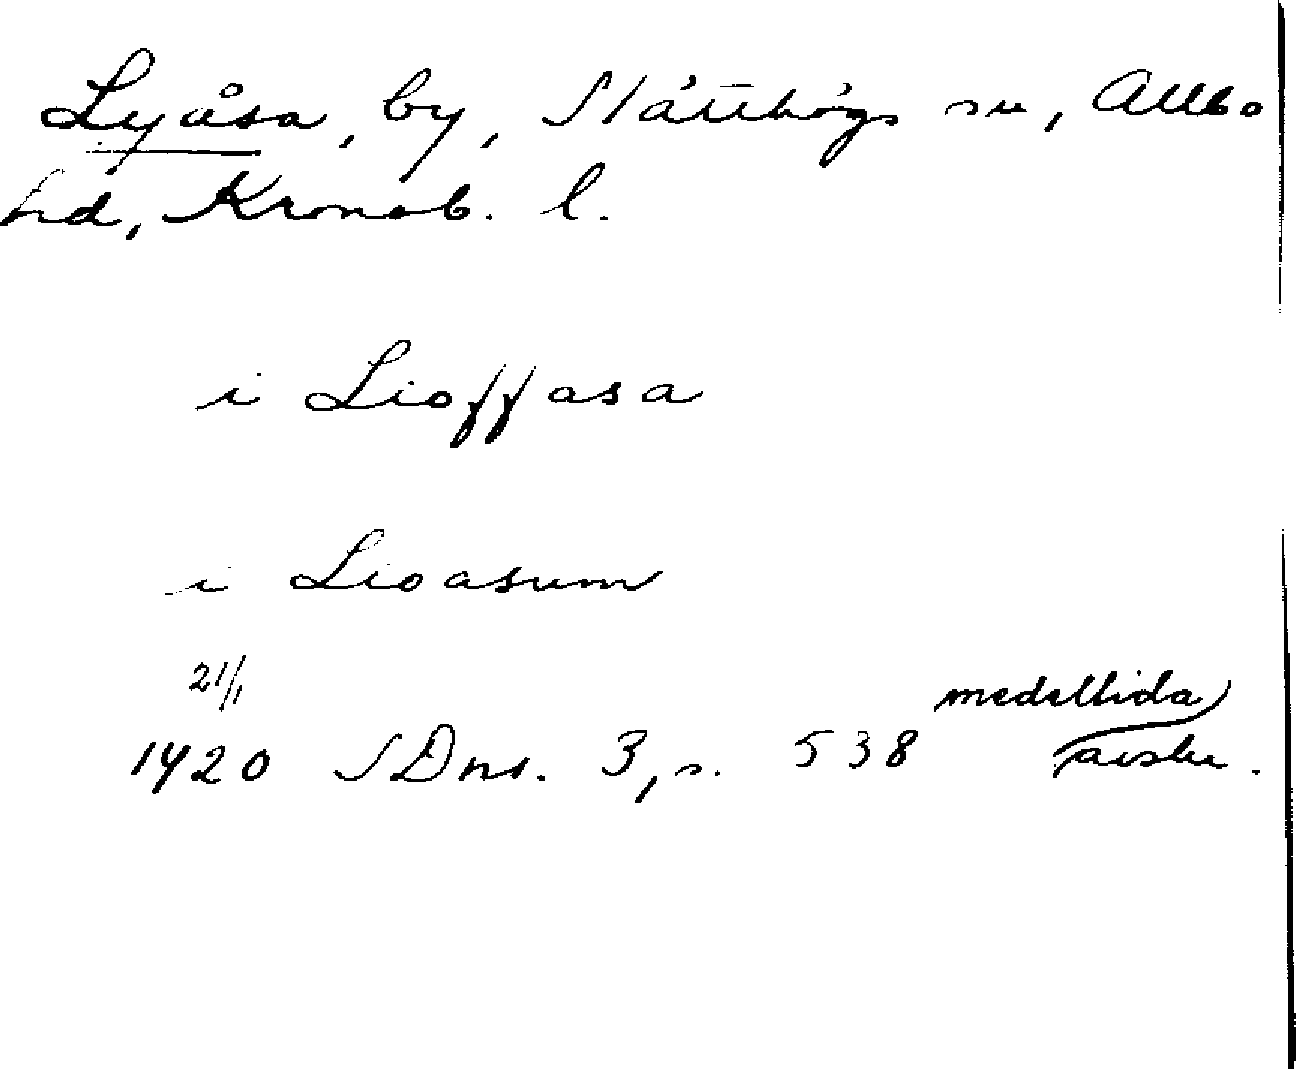 Lyåsa, by, Slätthögs sn, Allbo
hd, Kronob. l.
i Lioffasa
i Lioasum
21/1
1420 SDns. 3, s. 538 medeltida
avskr.